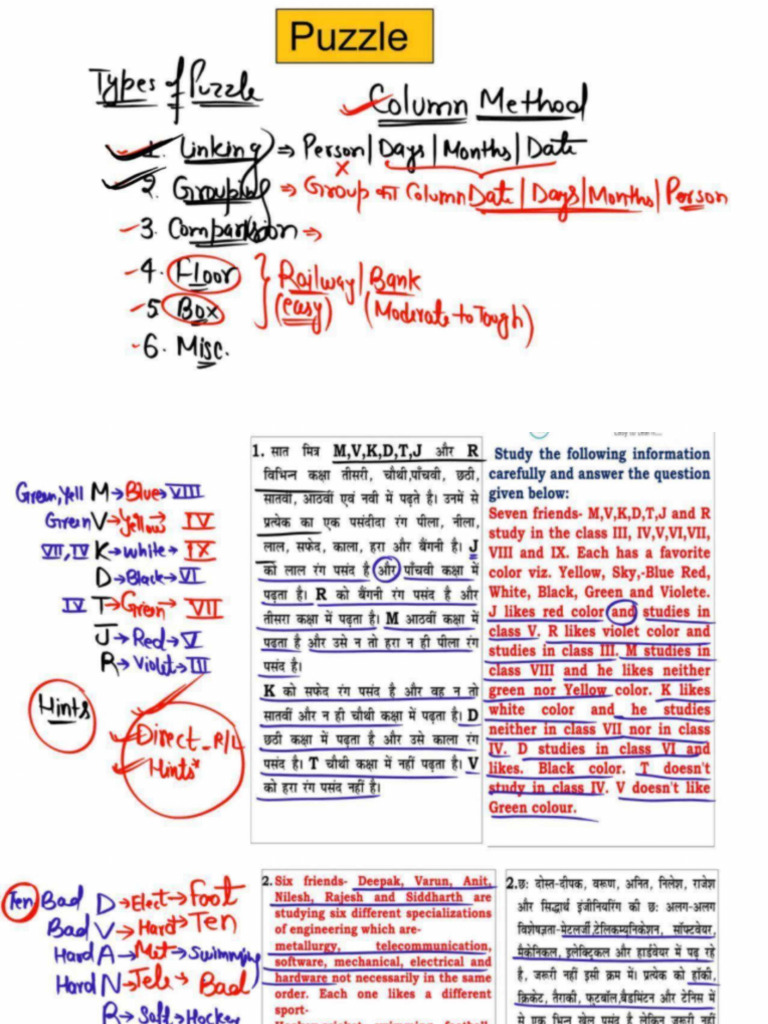 Puzzle
Types of Puzzle
Column Method
1. Linking ⇒ Person | Days | Months | Date
2. Grouping ⇒ Group का Column Date | Days | Months | Person
3. Comparision ⇒
4. Floor
5. Box
Railway | Bank
(easy) (Moderate to Tough)
6. Misc.
Green, Yell M → Blue → VIII
Green V → Yellow → IV
VII, IV K → White → IX
D → Black → VI
IV T → Green → VII
J → Red → V
R → Violet → III
Hints
Direct - R/L
Hints*
1. सात मित्र M,V,K,D,T,J और R
विभिन्न कक्षा तीसरी, चौथी,पाँचवी, छठी,
सातवीं, आठवीं एवं नवी में पढ़ते है। उनमें से
प्रत्येक का एक पसंदीदा रंग पीला, नीला,
लाल, सफेद, काला, हरा और बैंगनी है। J
को लाल रंग पसंद है और पाँचवी कक्षा में
पढ़ता है। R को बैंगनी रंग पसंद है और
तीसरा कक्षा में पढ़ता है। M आठवीं कक्षा में
पढ़ता है और उसे न तो हरा न ही पीला रंग
पसंद है।
K को सफेद रंग पसंद है और वह न तो
सातवीं और न ही चौथी कक्षा में पढ़ता है। D
छठी कक्षा में पढ़ता है और उसे काला रंग
पसंद है। T चौथी कक्षा में नहीं पढ़ता है। V
को हरा रंग पसंद नहीं है।
Study the following information
carefully and answer the question
given below:
Seven friends- M,V,K,D,T,J and R
study in the class III, IV,V,VI,VII,
VIII and IX. Each has a favorite
color viz. Yellow, Sky,-Blue Red,
White, Black, Green and Violete.
J likes red color and studies in
class V. R likes violet color and
studies in class III. M studies in
class VIII and he likes neither
green nor Yellow color. K likes
white color and he studies
neither in class VII nor in class
IV. D studies in class VI and
likes. Black color. T doesn't
study in class IV. V doesn't like
Green colour.
Ten Bad D → Elect → Foot
Bad V → Hard → Ten
Hard A → Met → Swimming
Hard N → Tele → Bad
R → Soft → Hockey
2. Six friends- Deepak, Varun, Anit,
Nilesh, Rajesh and Siddharth are
studying six different specializations
of engineering which are-
metallurgy, telecommunication,
software, mechanical, electrical and
hardware not necessarily in the same
order. Each one likes a different
sport-
2.छः दोस्त-दीपक, वरूण, अनित, निलेश, राजेश
और सिद्धार्थ इंजीनियरिंग की छः अलग-अलग
विशेषज्ञता-मेटलर्जी,टेलिकम्युनिकेशन, सॉफ्टवेयर,
मैकेनिकल, इलेक्ट्रिकल और हार्डवेयर में पढ़ रहे
है, जरूरी नहीं इसी क्रम में। प्रत्येक को हॉकी,
क्रिकेट, तैराकी, फुटबॉल,बैडमिंटन और टेनिस में
से एक भिन्न खेल पसंद है लेकिन जरूरी नहीं